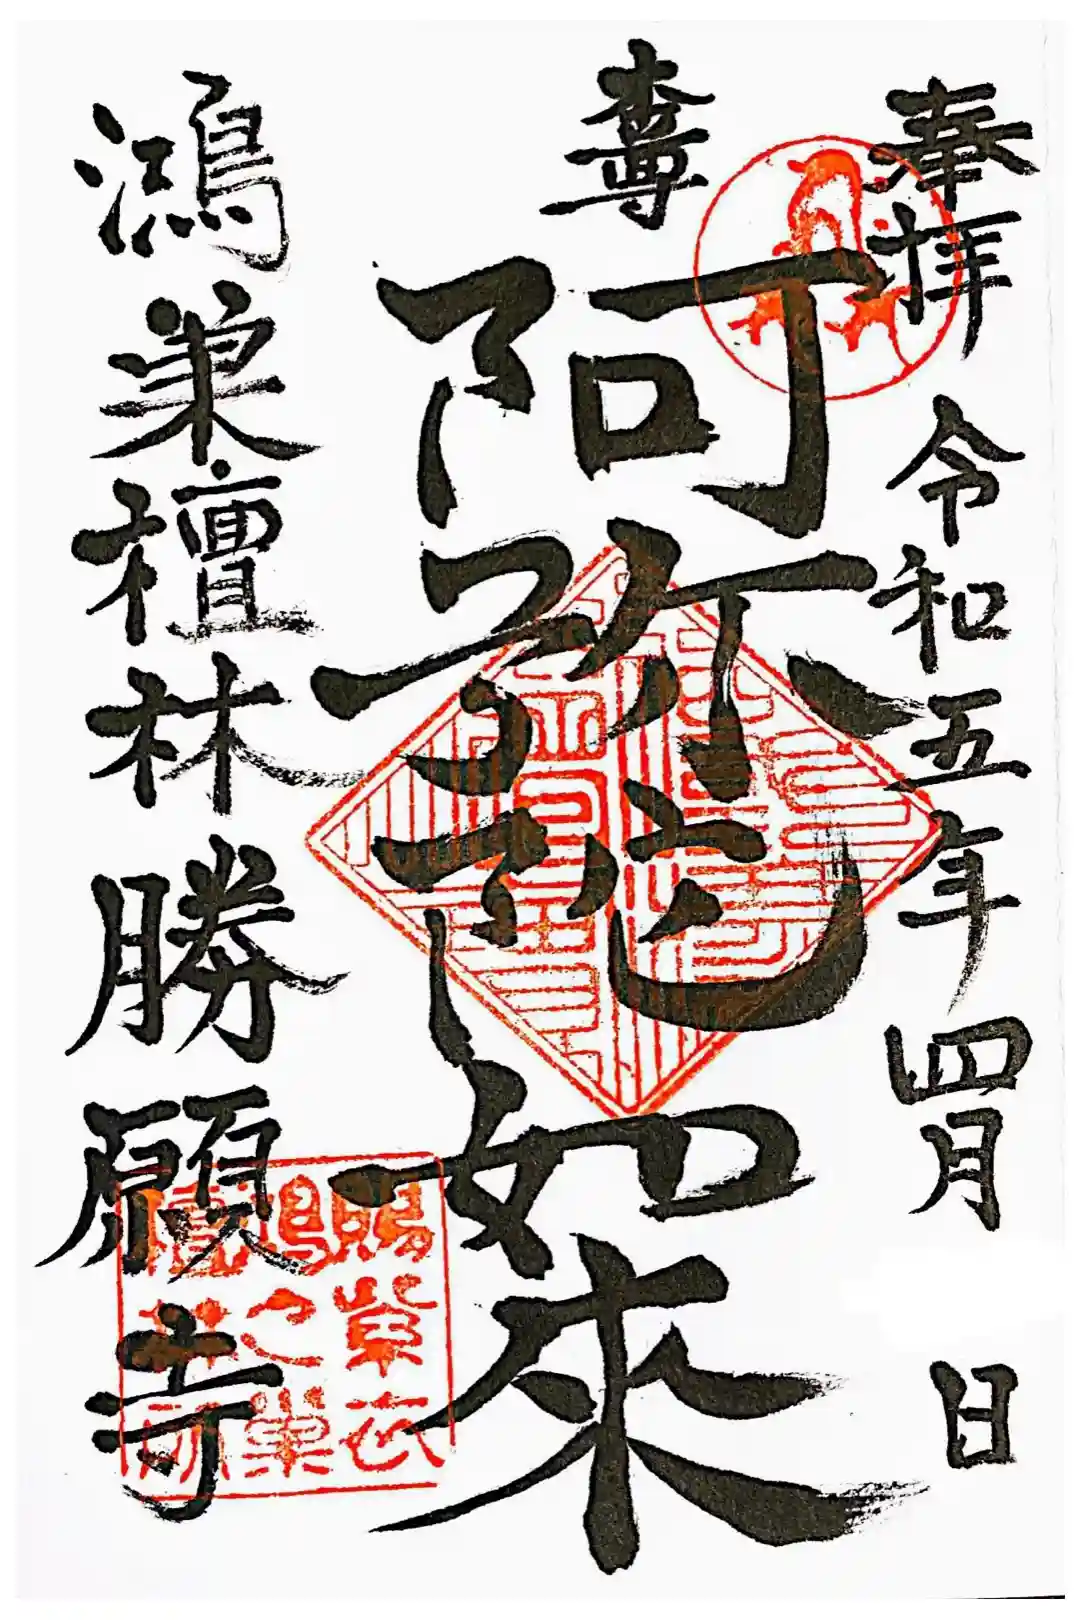 奉拝 令和五年四月 日
本尊
阿弥陀如來
鴻巣檀林勝願寺
賜紫衣
鴻之巣